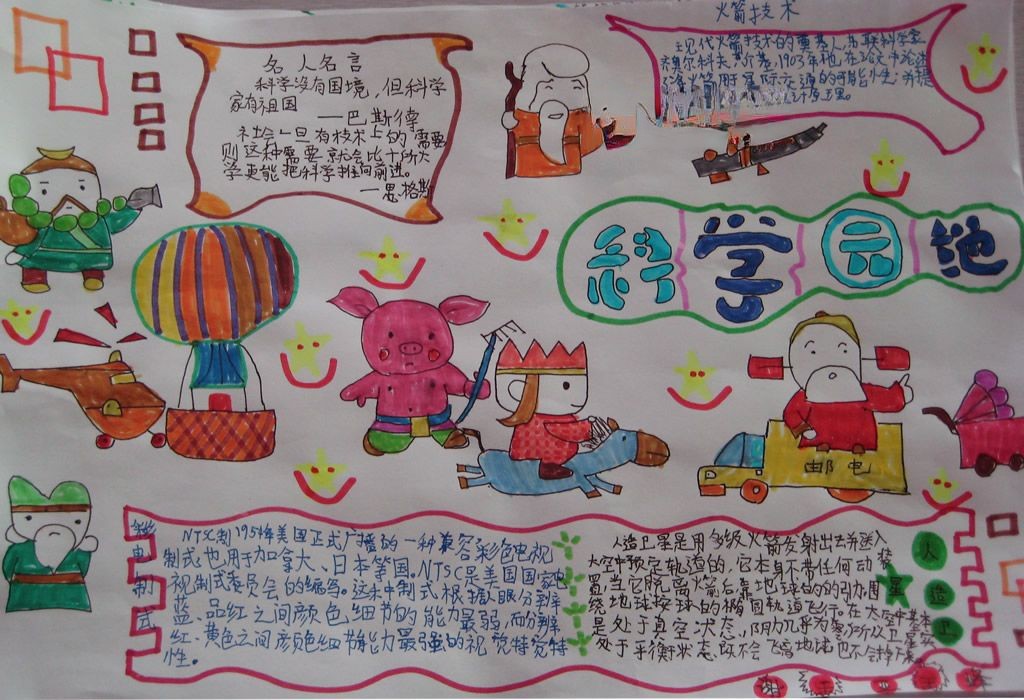 火箭技术
现代火箭技术的奠基人苏联科学家
1903年他在
火箭用于
名人名言
科学没有国境,但科学
家有祖国
——巴斯德
社会一旦有技术上的需要
则这种需要就会比十所大
学更能把科学推向前进。
—恩格斯
科学园地
邮电
彩电制式
NTSC制1954年美国正式广播的一种兼容彩色电视
制式也用于加拿大、日本等国。NTSC是美国国家电
视制式委员会的缩写。这种制式根据人眼分辨
蓝、品红之间颜色细节的能力最弱,而分辨
红、黄色之间颜色细节能力最强的视觉特
性。
人造卫星
人造卫星是用多级火箭发射出去并送入
太空中预定轨道的,它本身不带任何动
装
置,当它脱离火箭后,靠地球的的引力围
绕地球按
的椭圆轨道飞行。在太空中基本
是处于真空状态,阴力几乎为零,所以卫星
处于平衡状态,既不会飞离地球也不会掉下来。